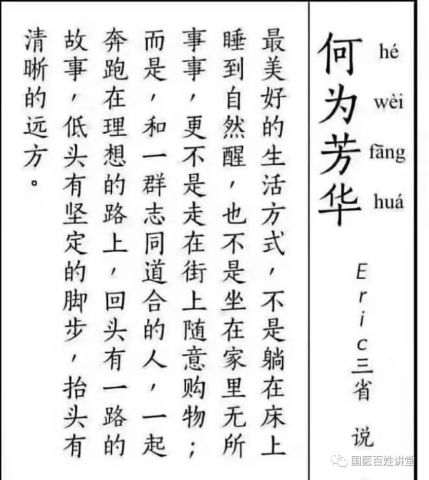 何为芳华
hé wèi fāng huá
Eric三省 说
最美好的生活方式，不是躺在床上
睡到自然醒，也不是坐在家里无所
事事，更不是走在街上随意购物；
而是，和一群志同道合的人，一起
奔跑在理想的路上，回头有一路的
故事，低头有坚定的脚步，抬头有
清晰的远方。
国医百姓讲堂